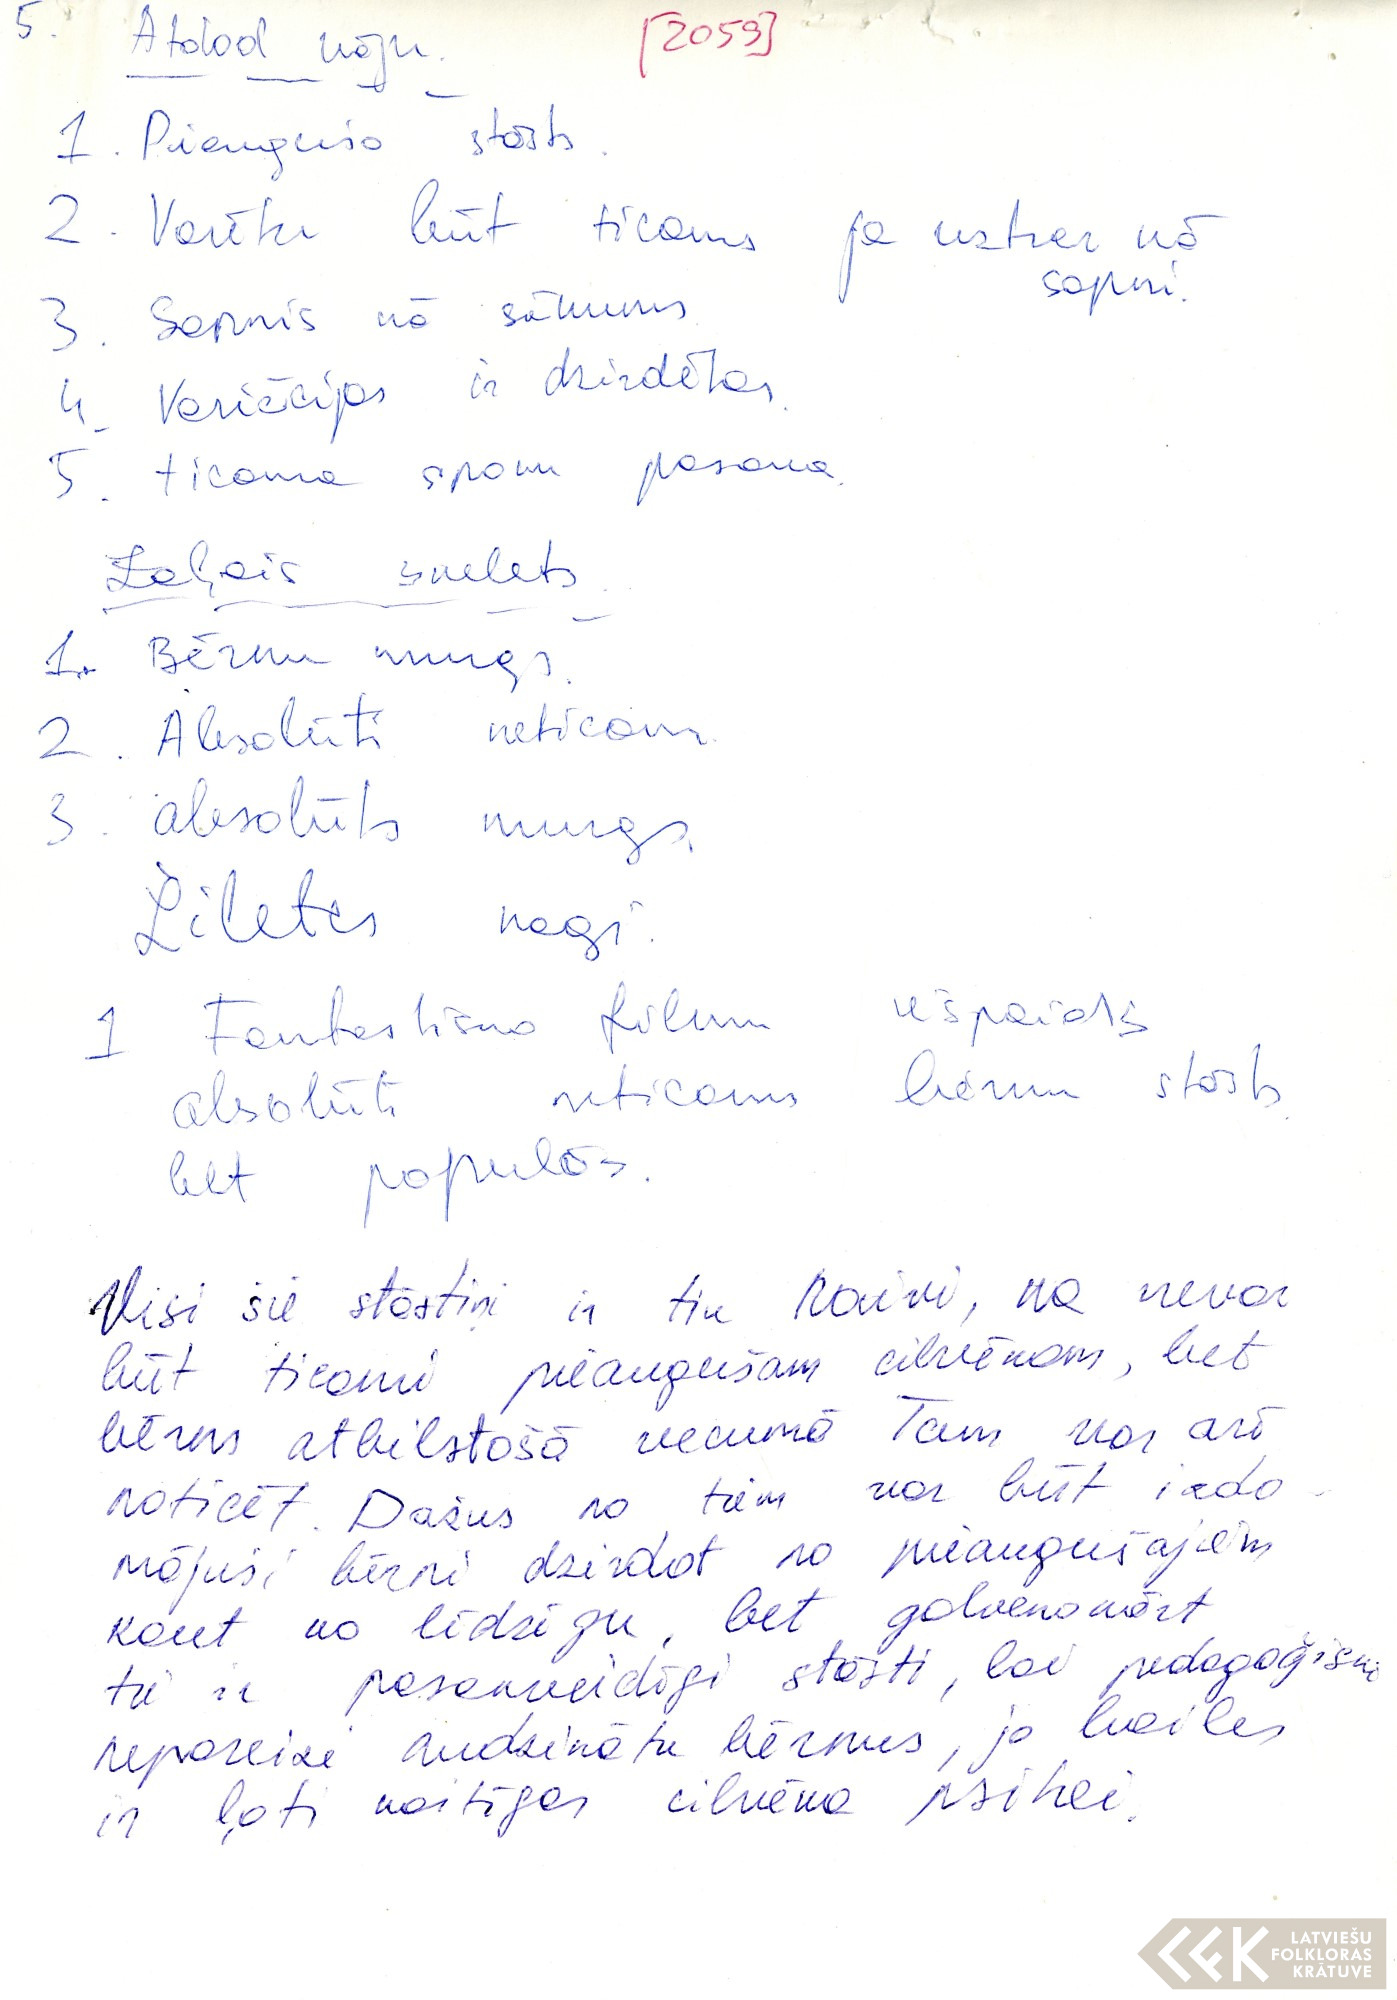 5. Atdod kāju. [2059]
1. Pieauguša stāsts.
2. Varētu būt ticams ja uztver kā
sapni.
3. Sapnis kā sākums
4. Variācijas ir dzirdētas.
5. ticama spoku pasaka.
Zaļais skelets.
1. Bērnu murgs.
2. Absolūti neticams.
3. absolūts murgs.
Žiletes nagi.
1 Fantastisko filmu iespaids
absolūti neticams bērnu stāsts.
bet populārs.
Visi šie stāstiņi ir tik naivi, ka nevar
būt ticami pieaugušam cilvēkam, bet
bērns atbilstošā vecumā Tam var arī
noticēt. Dažus no tiem var būt izdo-
mājuši bērni dzirdot no pieaugušajiem
kaut ko līdzīgu, bet galvenokārt
tie ir pasakveidīgi stāsti, lai pedagoģiski
nepareizi audzinātu bērnus, jo bailes
ir ļoti kaitīgas cilvēka psihei.
LATVIEŠU
FOLKLORAS
KRĀTUVE